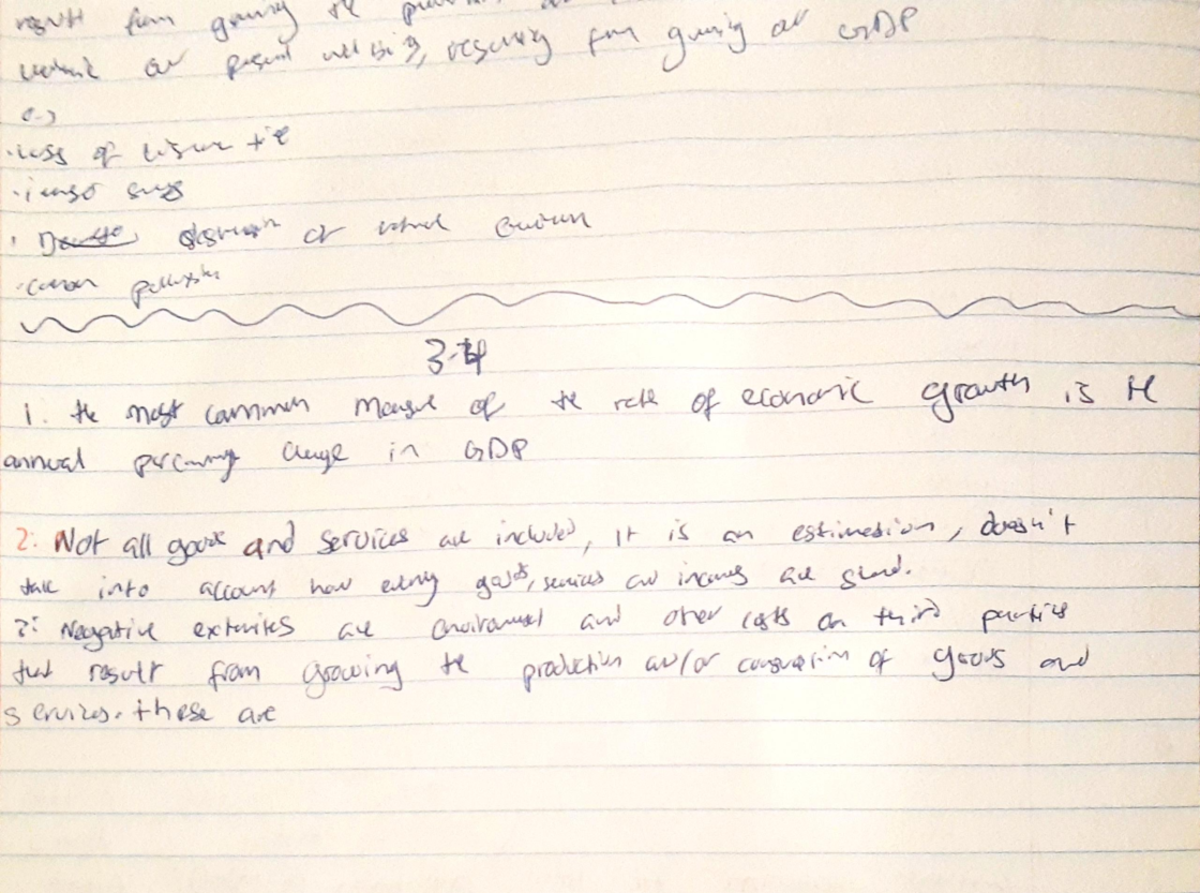 result from growing the
our present well being, resulting from growing our GDP
(-)
·loss of leisure time
·
· of natural
·carbon pollution
3.4
1. the most common measure of the rate of economic growth is the
annual percentage change in GDP
2. Not all goods and services are included, it is an estimation, doesn't
take into account how evenly goods, services and incomes are shared.
3. Negative externalities are environmental and other costs on third parties
that result from growing the production and/or consumption of goods and
services. these are